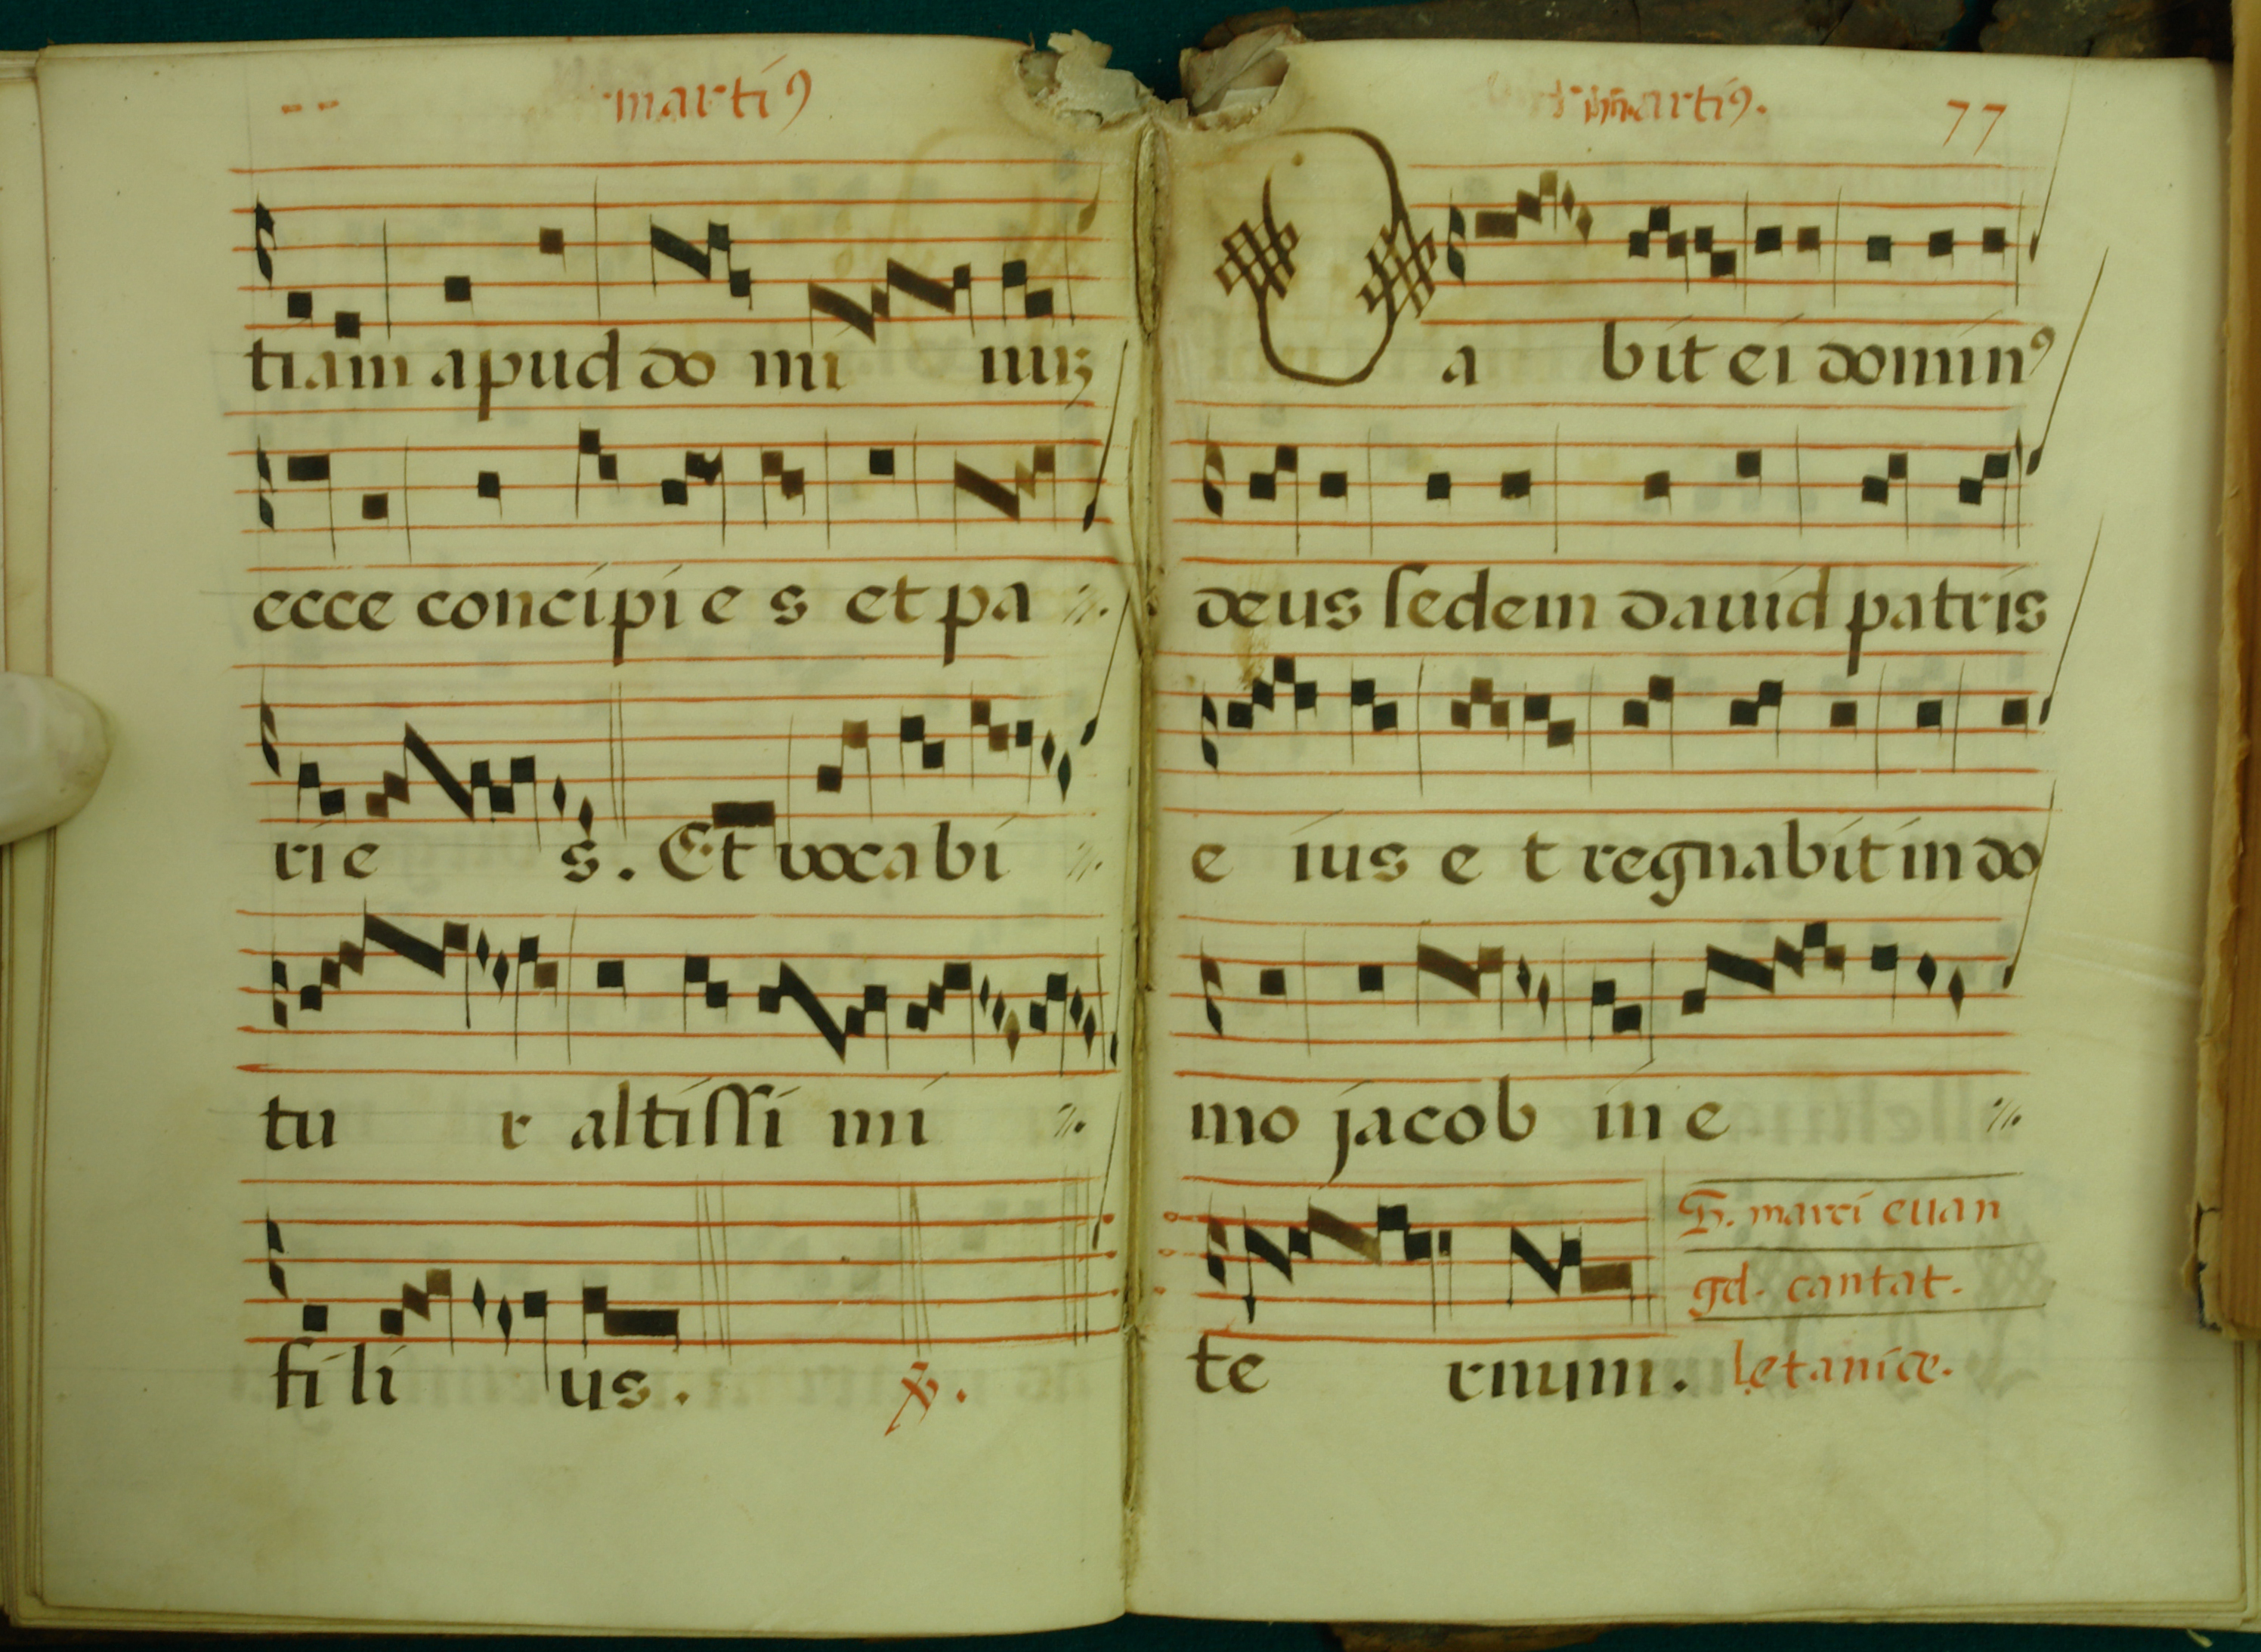 martiꝰ
tiam apud do mi nuꝫ
ecce concipi e s et pa
ri e s. Et vocabi
tu r altissi mi
fi li us. ℟.
martiꝰ. 77
Da bit ei dominꝰ
deus sedem dauid patris
e ius e t regnabit in do
mo jacob in e
te rnum.
marci euan
gel. cantat.
letaniæ.